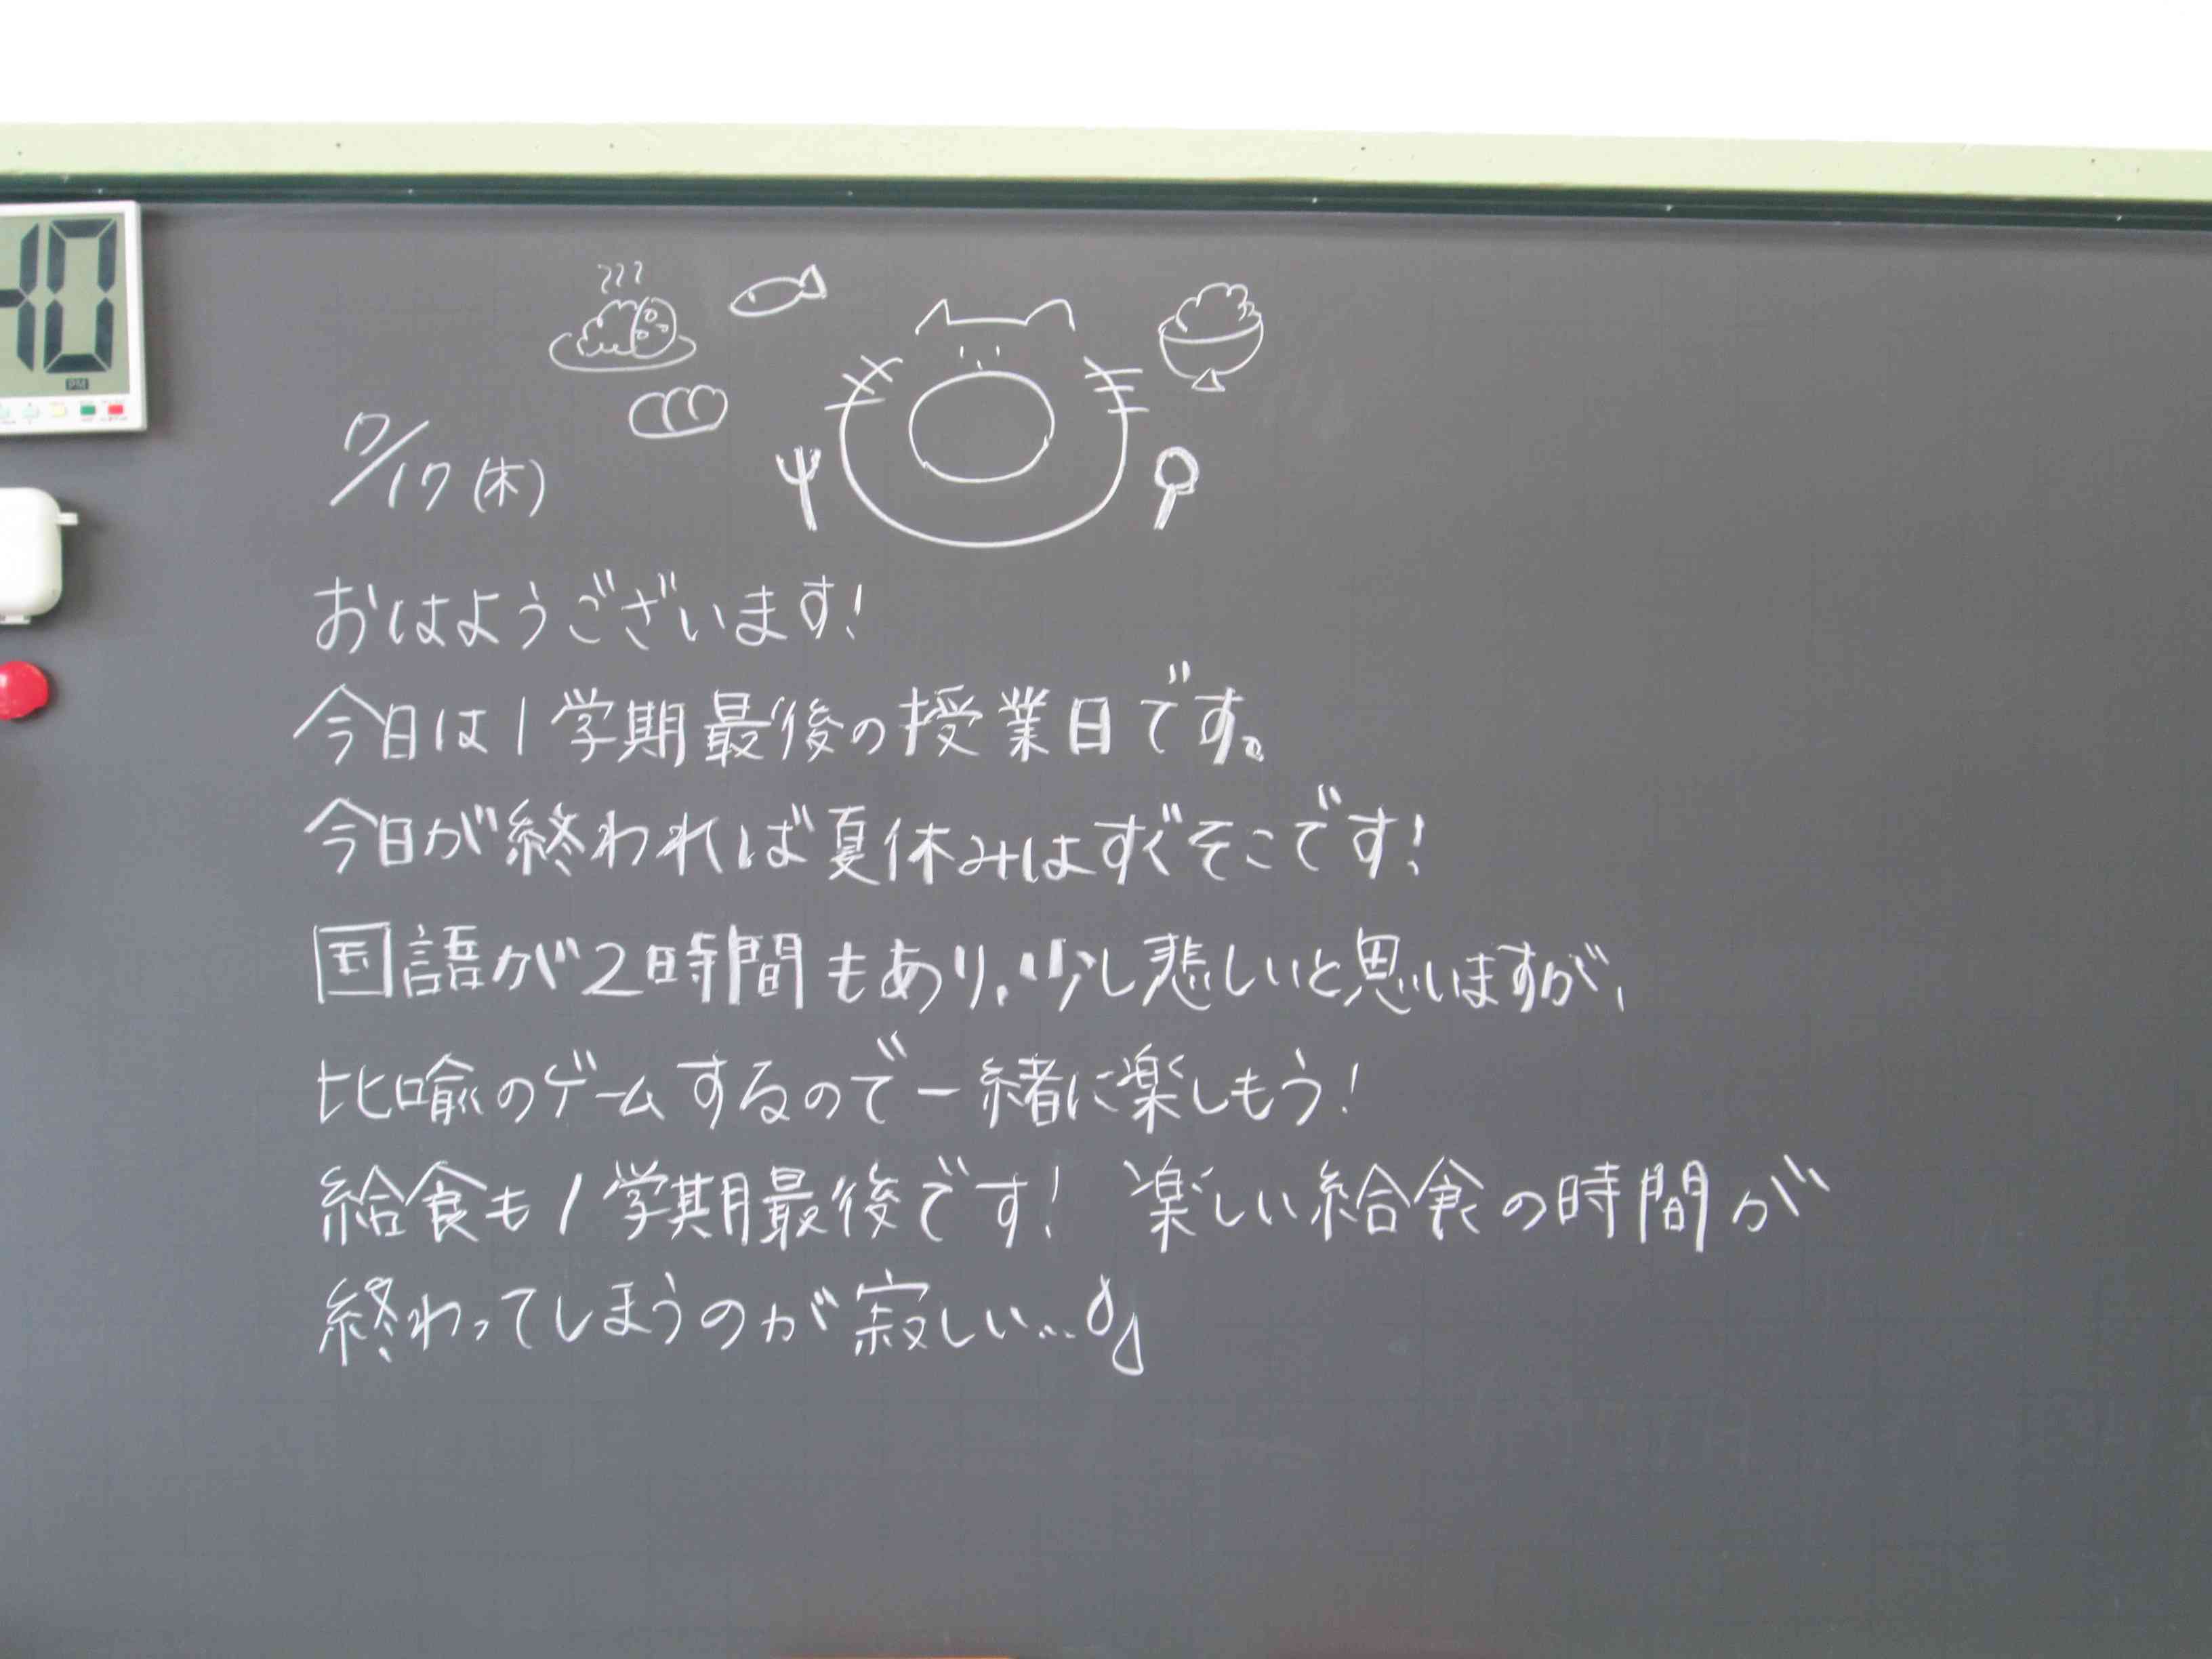 10
PM
7/17(木)
おはようございます!
今日は1学期最後の授業日です。
今日が終われば夏休みはすぐそこです!
国語が2時間もあり、少し悲しいと思いますが、
比喩のゲームするので一緒に楽しもう!
給食も1学期最後です! 楽しい給食の時間が
終わってしまうのが寂しい...